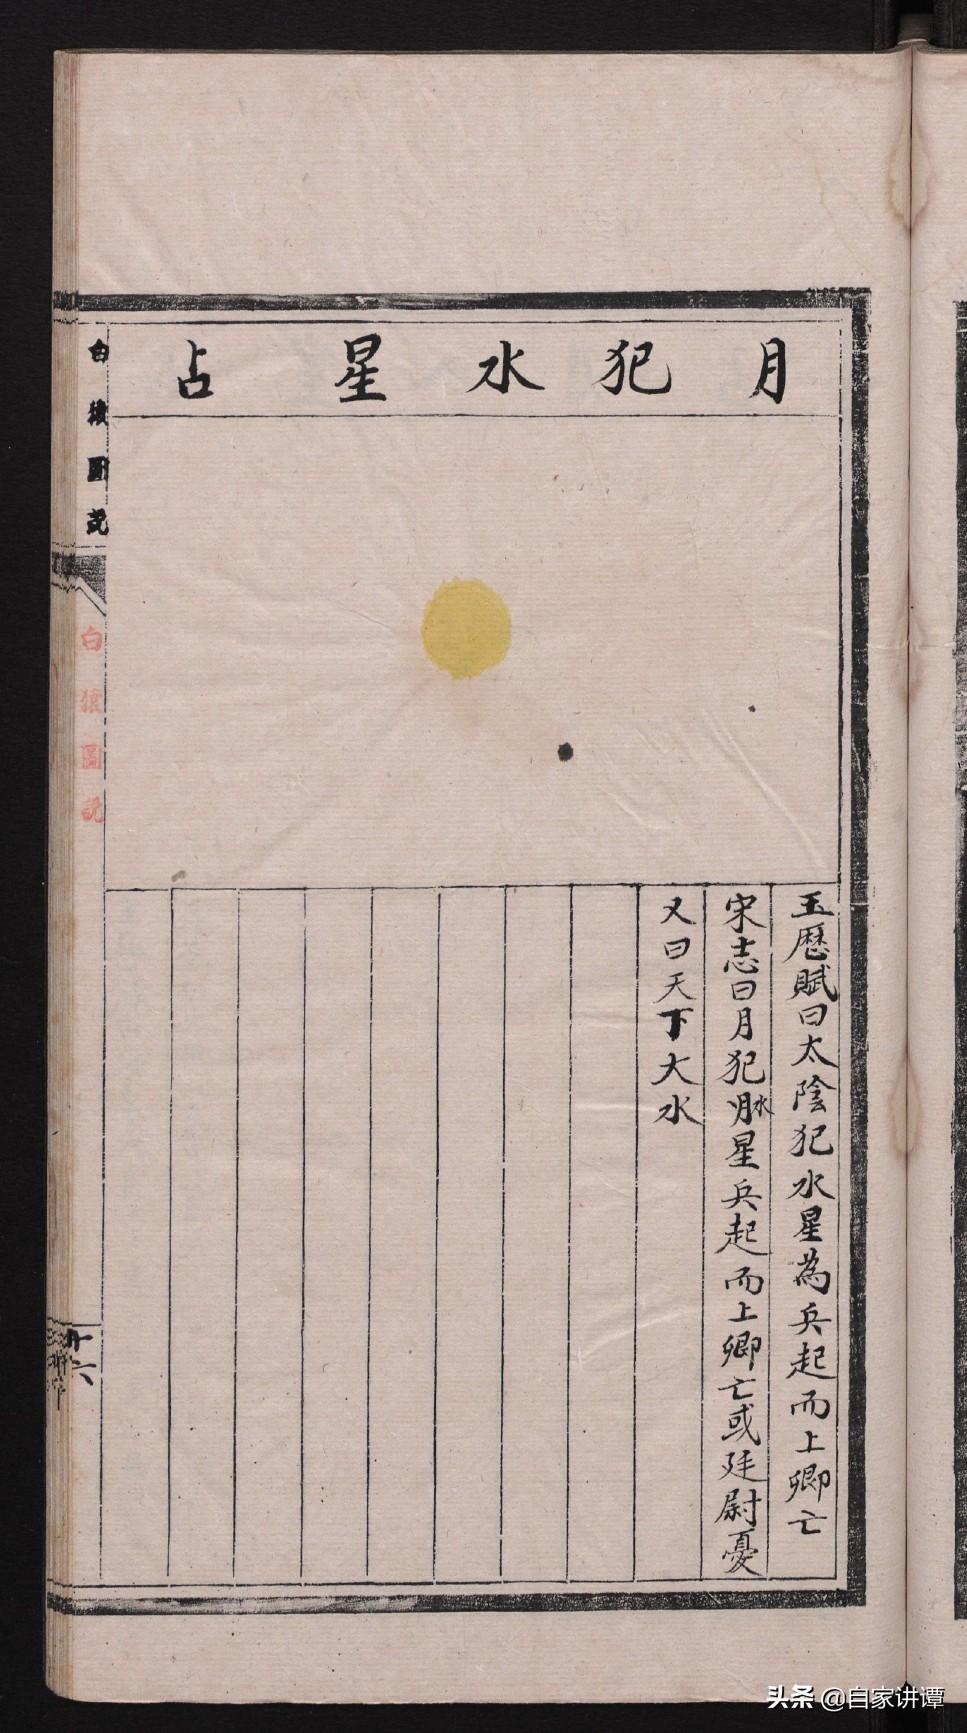 月犯水星占
玉歷賦曰太陰犯水星為兵起而上卿亡
宋志曰月犯水星兵起而上卿亡或廷尉憂
又曰天下大水
白猿圖說
白猿圖說
廿六
头条 @自家讲谭